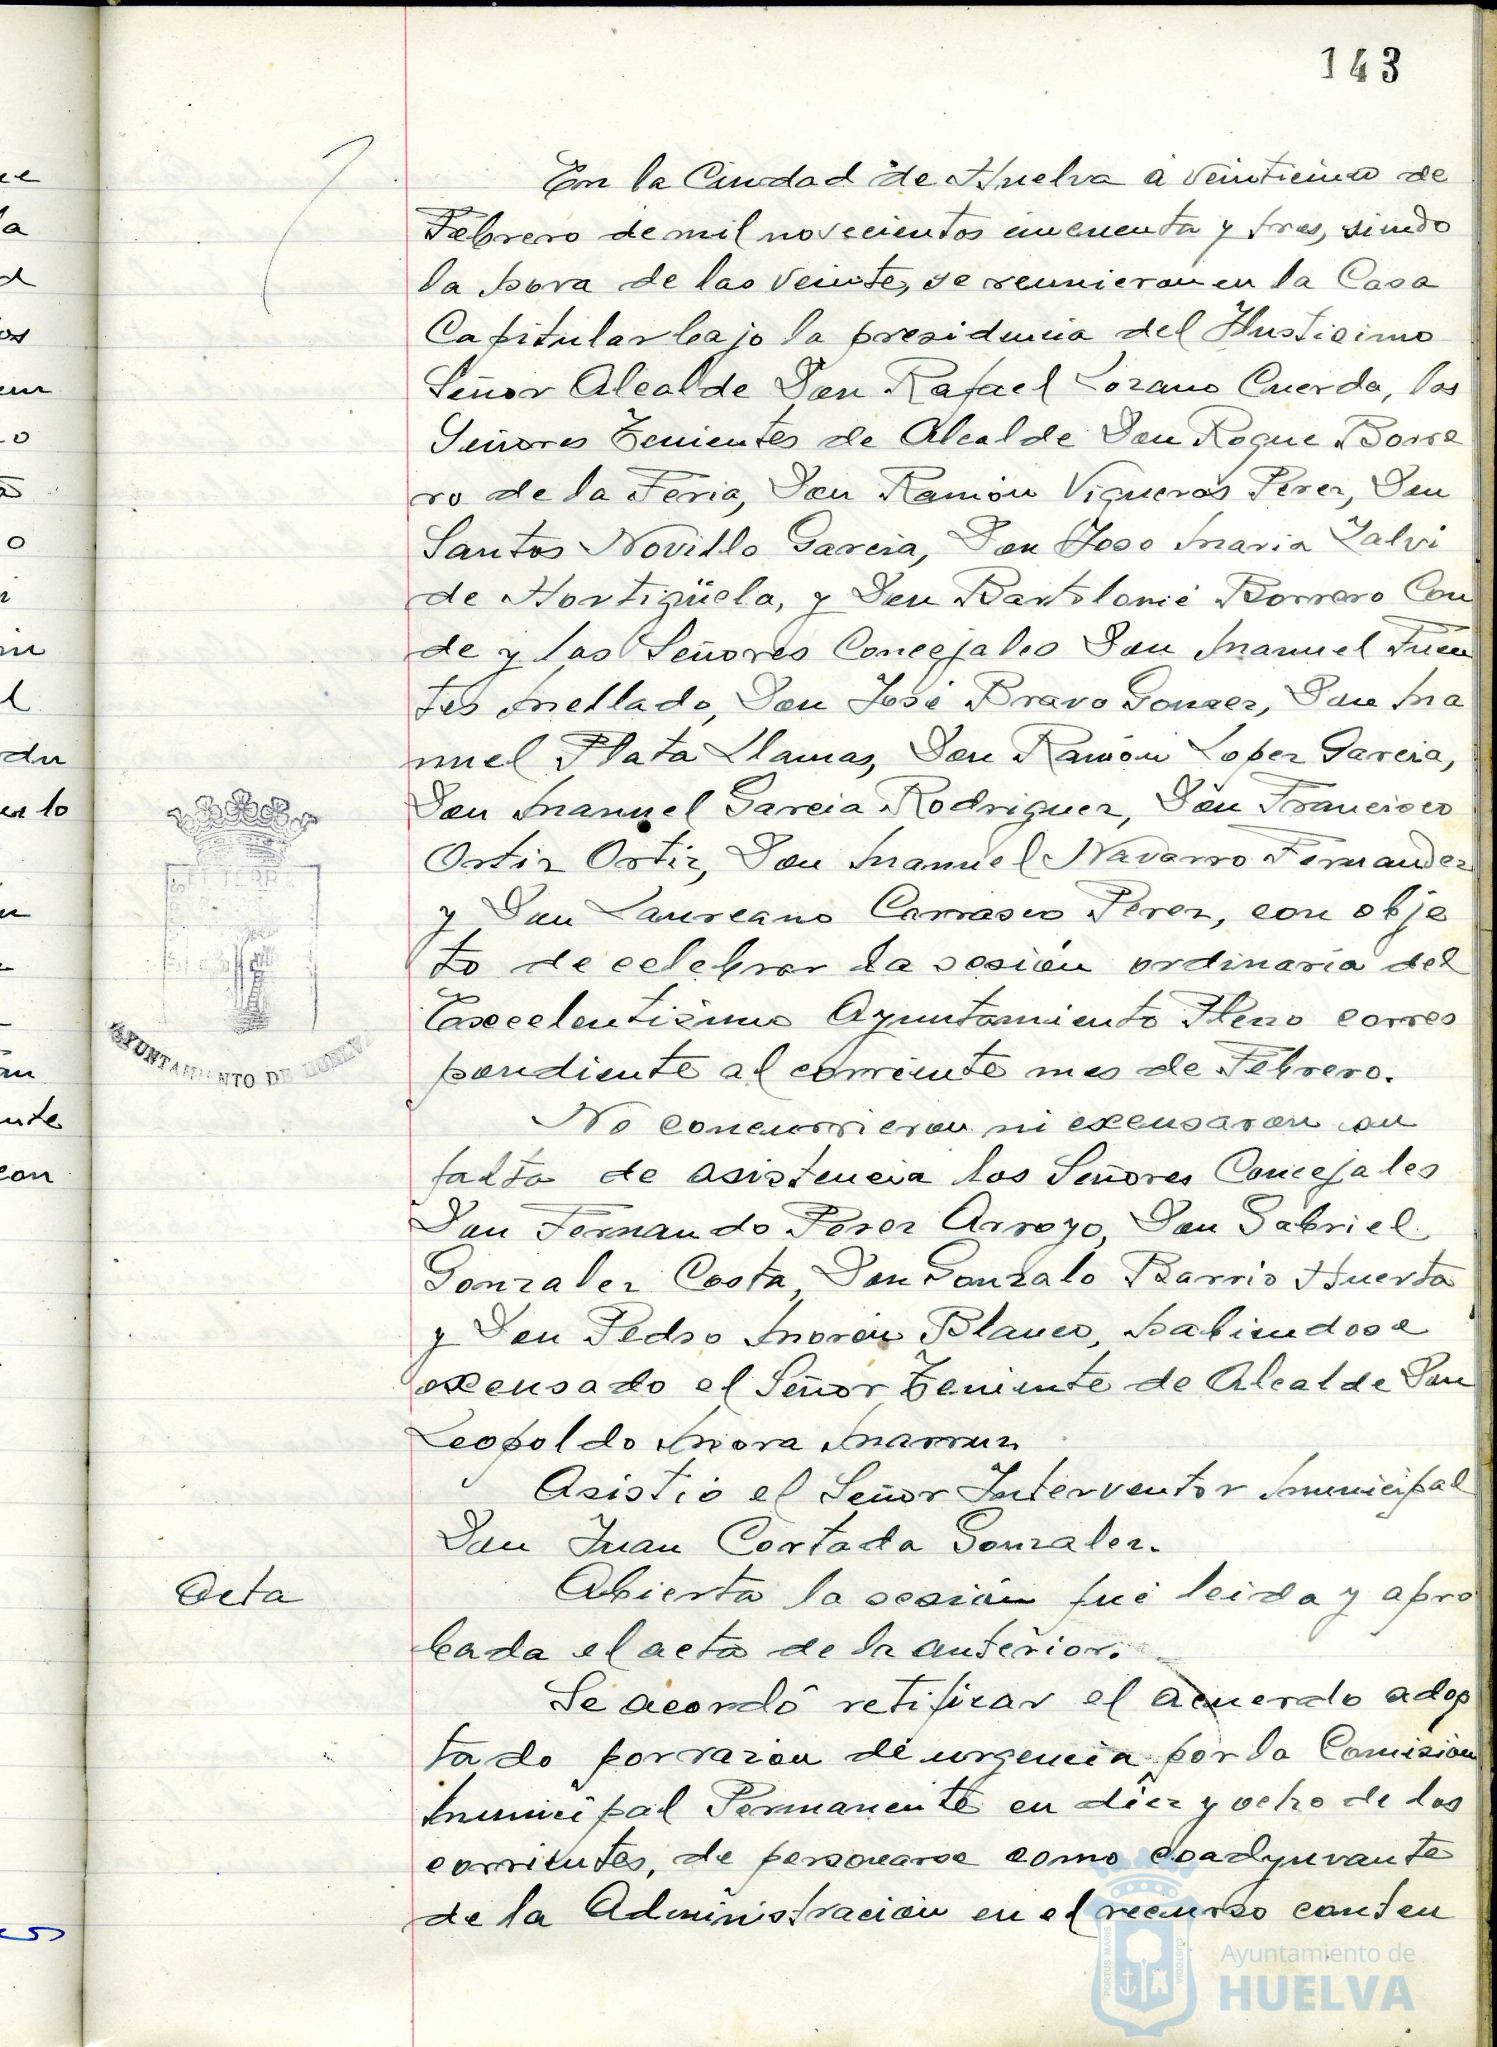 143
En la Ciudad de Huelva a veinticinco de
Febrero de mil novecientos cincuenta y tres, siendo
la hora de las veinte, se reunieron en la Casa
Capitular bajo la presidencia del Ilustisimo
Señor Alcalde Don Rafael Lozano Cuerda, los
Señores Tenientes de Alcalde Don Roque Borre
ro de la Feria, Don Ramón Vigueras Perez, Don
Santos Novillo Garcia, Don Jose Maria Zalvi
de Hortigüela, y Don Bartolomé Borrero Con
de y los Señores Concejales Don Manuel Fuen
tes Mellado, Don José Bravo Gomez, Don Ma
nuel Plata Llamas, Don Ramón Lopez Garcia,
Don Manuel Garcia Rodriguez, Don Francisco
Ortiz Ortiz, Don Manuel Navarro Fernandez
y Don Laureano Carrasco Perez, con obje
to de celebrar la sesión ordinaria del
Excelentisimo Ayuntamiento Pleno corres
pondiente al corriente mes de Febrero.
No concurrieron ni excusaron su
falta de asistencia los Señores Concejales
Don Fernando Perez Arroyo, Don Gabriel
Gonzalez Costa, Don Gonzalo Barrio Huerta
y Don Pedro Morón Blanco, habiendose
excusado el Señor Teniente de Alcalde Don
Leopoldo Mora
Asistió el Señor Interventor Municipal
Don Juan Cortada Gonzalez.
Acta
Abierta la sesión fué leida y apro
bada el acta de la anterior.
Se acordó retificar el acuerdo adop
tado por razon de urgencia por la Comisión
Municipal Permanente en diez y ocho de los
corrientes, de personarse como coadyuvante
de la Administración en el recurso conten
AYUNTAMIENTO DE HUELVA
PORTUS MARIS CUSTODIA
Ayuntamiento de
HUELVA